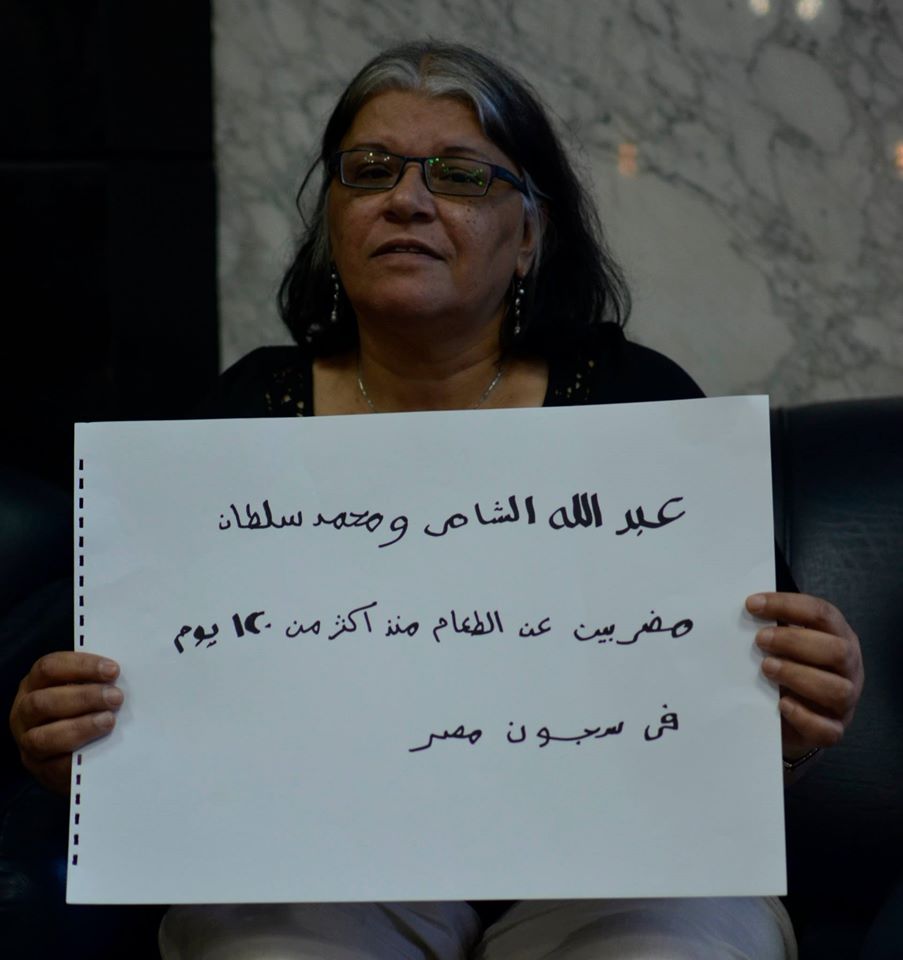 عبد الله الشامى ومحمد سلطان
مضربين عن الطعام منذ اكثر من ١٢٠ يوم
فى سجون مصر